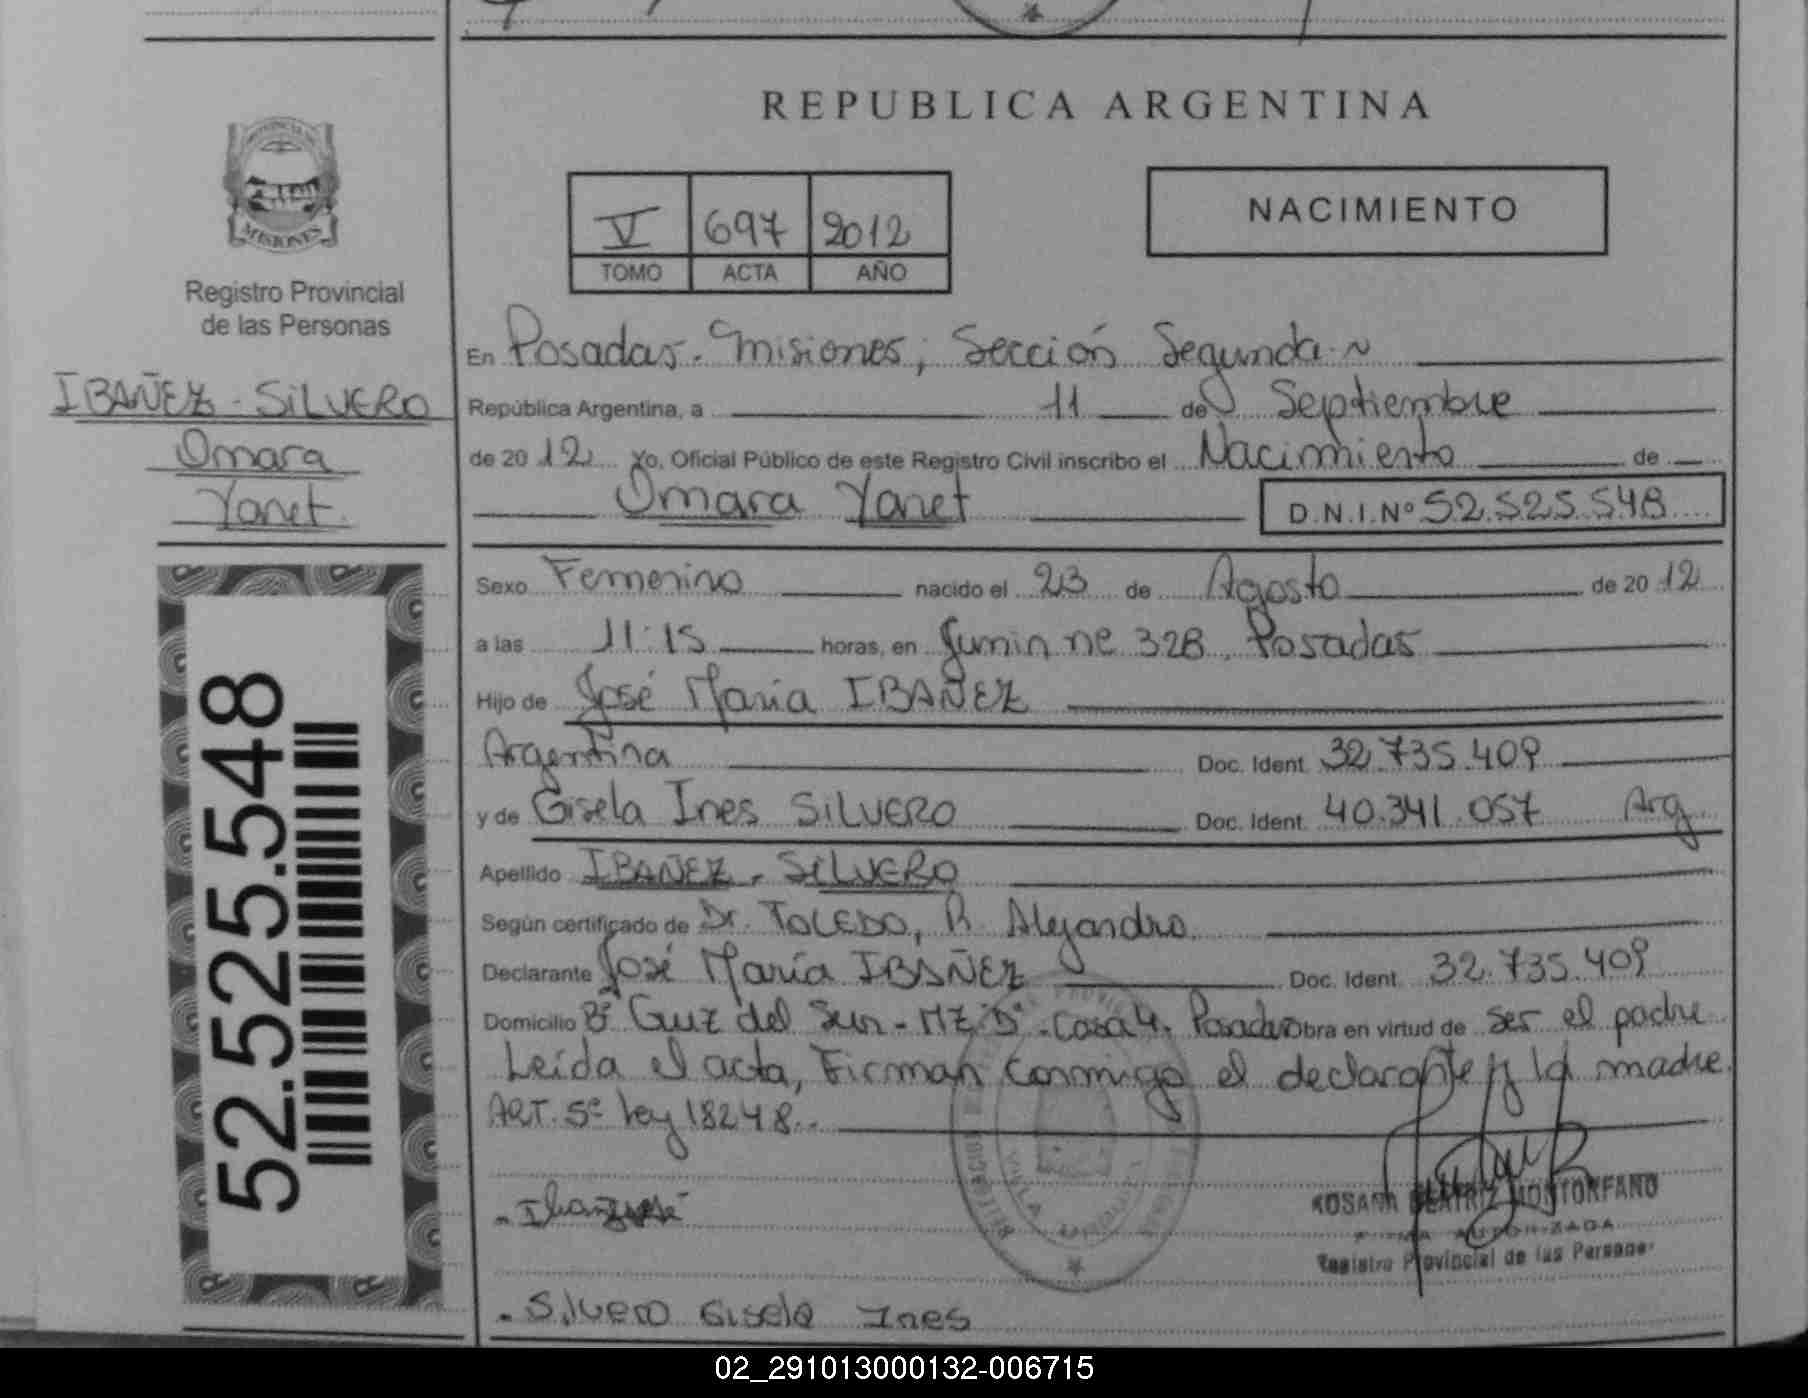 REPUBLICA ARGENTINA
MISIONES
Registro Provincial
de las Personas
IBAÑEZ - SILVERO
Omara
Yanet
52.525.548
V 697 2012
TOMO ACTA AÑO
NACIMIENTO
En Posadas. Misiones, Sección Segunda
República Argentina, a 11 de Septiembre
de 2012 Yo, Oficial Público de este Registro Civil inscribo el Nacimiento de
Omara Yanet D.N.I.Nº 52.525.548
Sexo Femenino nacido el 23 de Agosto de 2012
a las 11:15 horas, en Junin nº 328, Posadas
Hijo de José María IBAÑEZ
Argentina Doc. Ident. 32.735.409
y de Gisela Ines SILVERO Doc. Ident. 40.341.057 Arg
Apellido IBAÑEZ - SILVERO
Según certificado de Dr. TOLEDO, R. Alejandro
Declarante José María IBAÑEZ Doc. Ident. 32.735.409
Domicilio Bº Cruz del Sur - MZ "D" - Casa 4. Posadas obra en virtud de ser el padre
Leída el acta, Firman conmigo el declarante y la madre
ART. 5º Ley 18248.
Ibañez José
ROSANA BEATRIZ MONTORFANO
FIRMA AUTORIZADA
Registro Provincial de las Personas
Silvero Gisela Ines
02_291013000132-006715